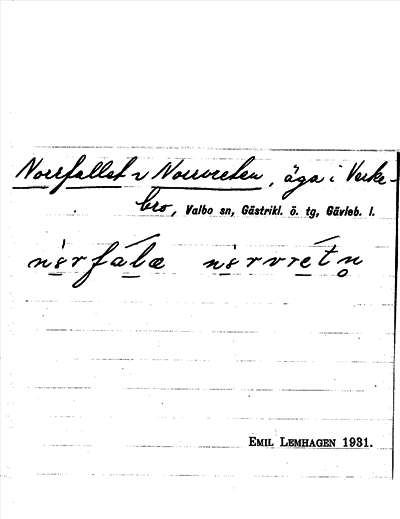 Norrfallet v Norrvreten, äga i Verke-
bro, Valbo sn, Gästrikl. ö. tg, Gävleb. l.
nòrfálæ nòrvrétn̥
EMIL LEMHAGEN 1931.